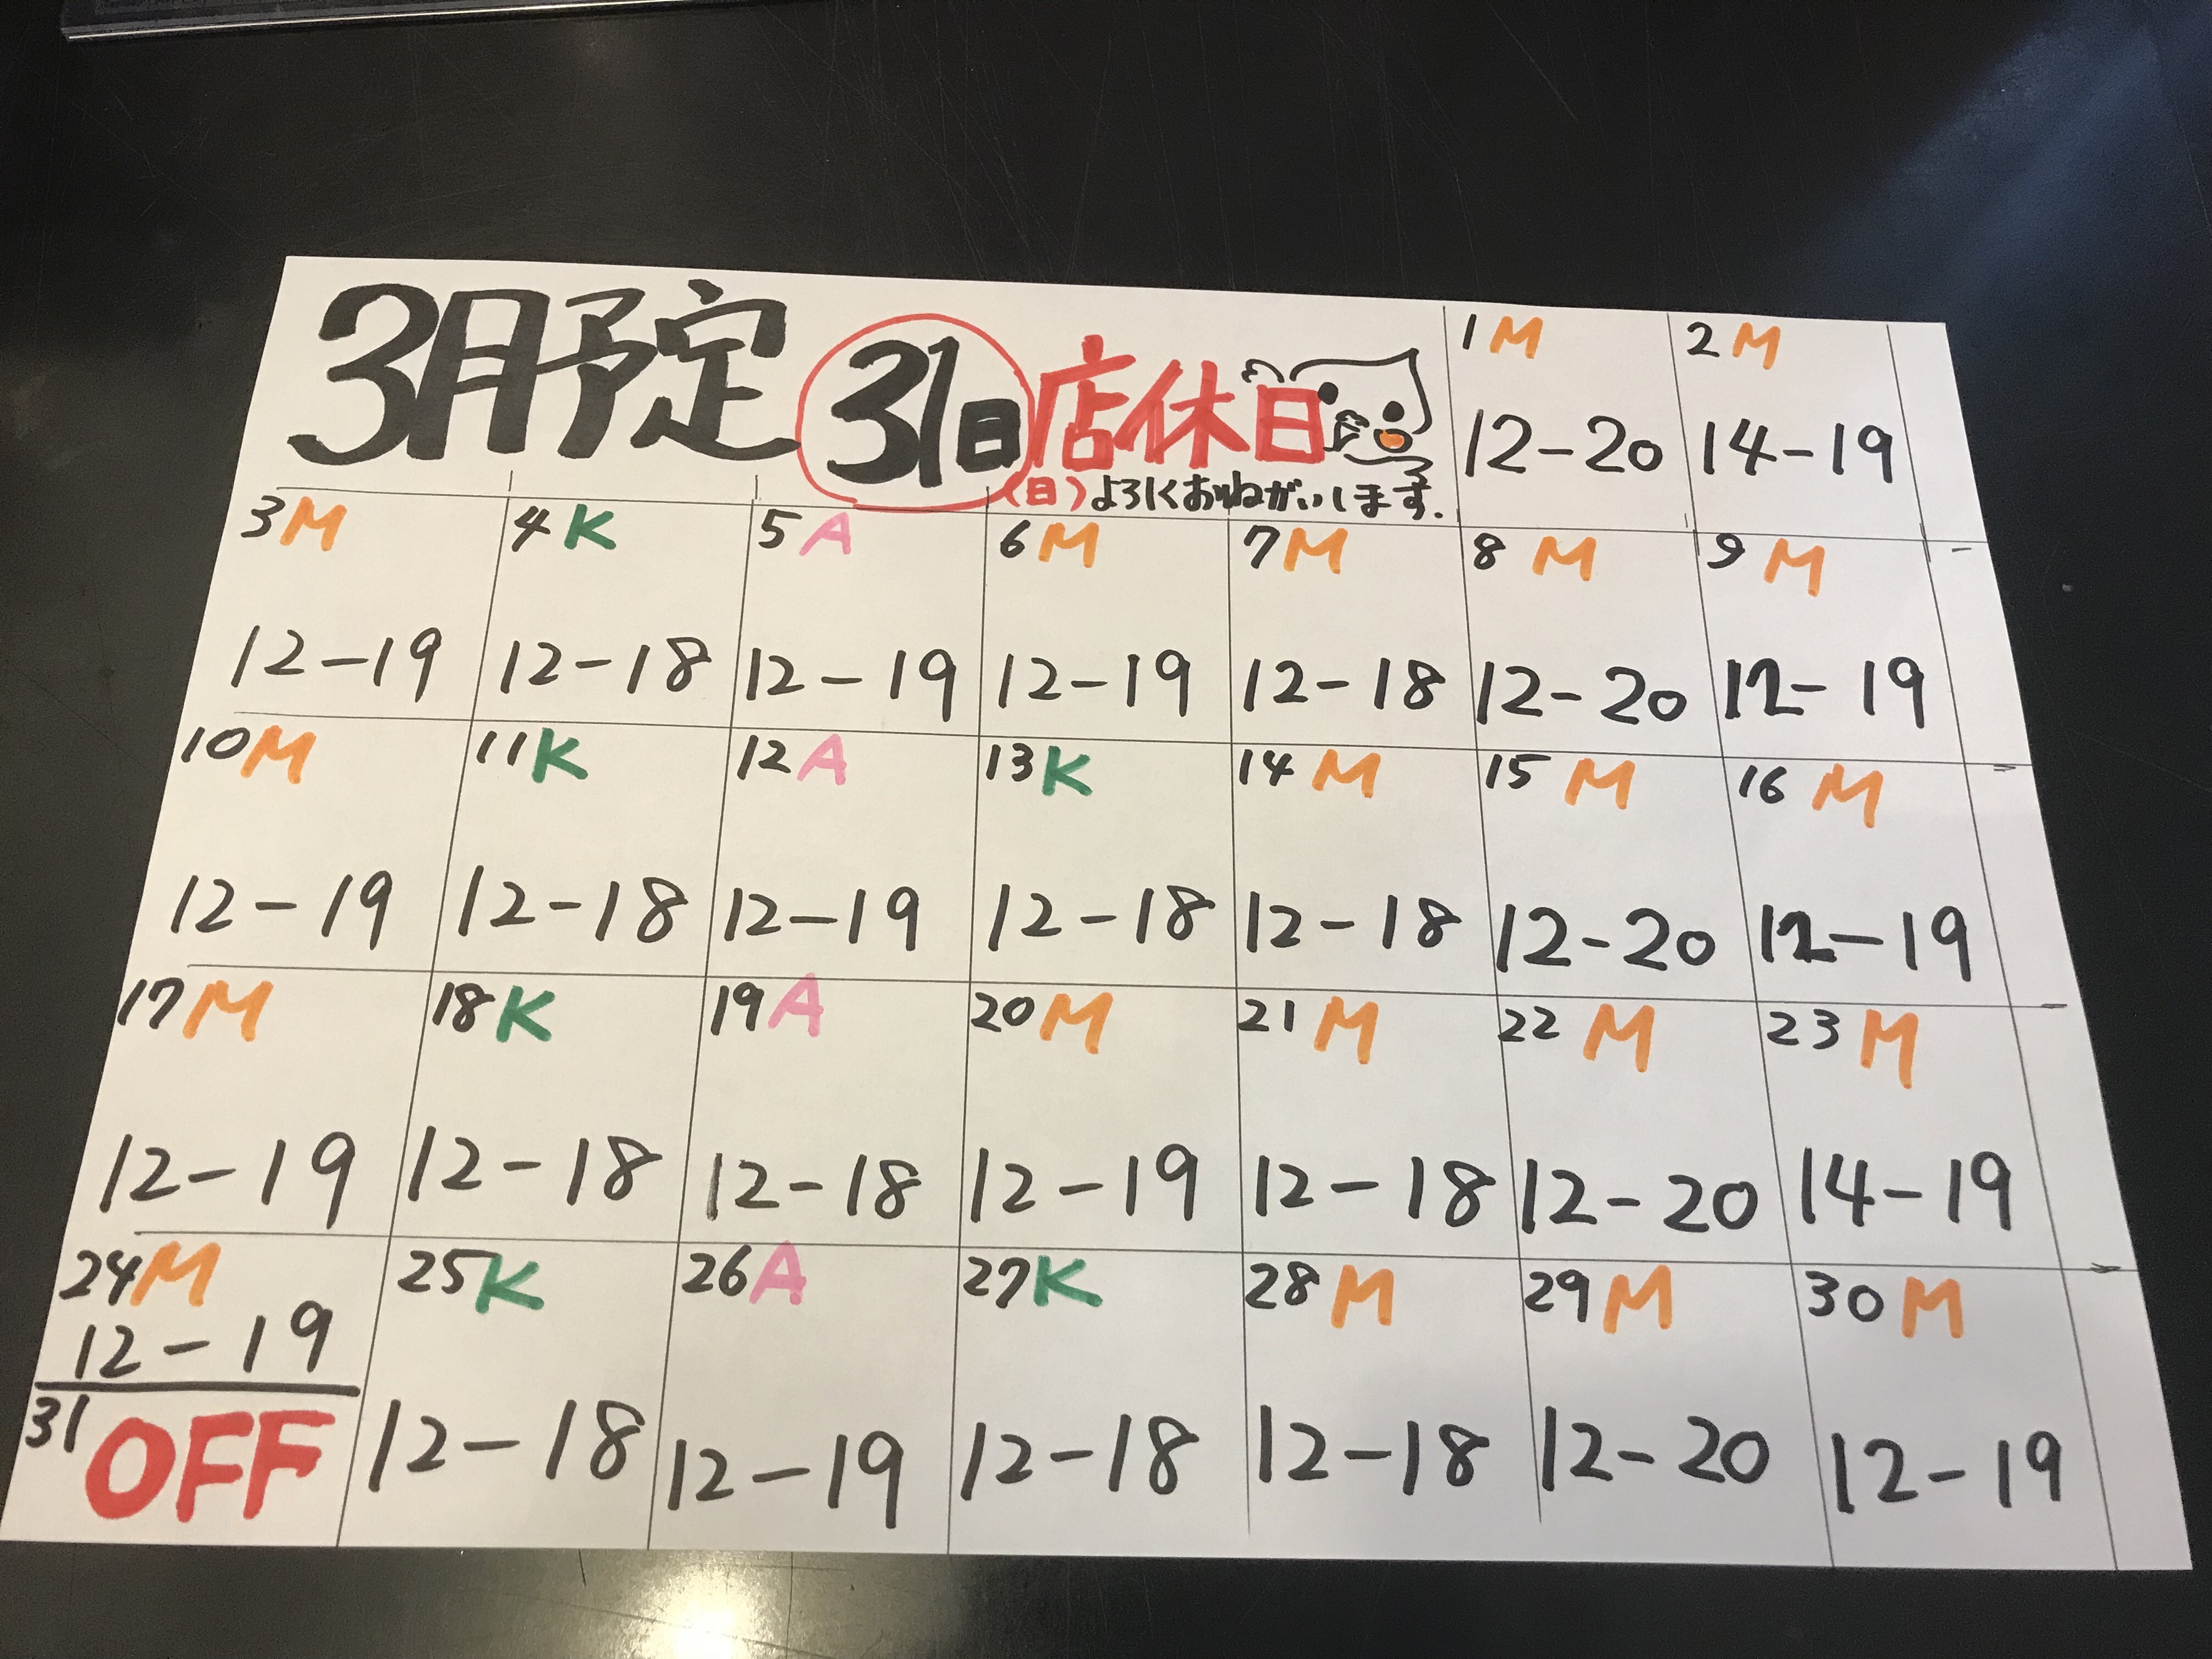 3月予定 31日 店休日
(日)よろしくおねがいします.
1 M 2 M
12-20 14-19
3 M 4 K 5 A 6 M 7 M 8 M 9 M
12-19 12-18 12-19 12-19 12-18 12-20 12-19
10 M 11 K 12 A 13 K 14 M 15 M 16 M
12-19 12-18 12-19 12-18 12-18 12-20 12-19
17 M 18 K 19 A 20 M 21 M 22 M 23 M
12-19 12-18 12-18 12-19 12-18 12-20 14-19
24 M 25 K 26 A 27 K 28 M 29 M 30 M
12-19 12-18 12-19 12-18 12-18 12-20 12-19
31 OFF